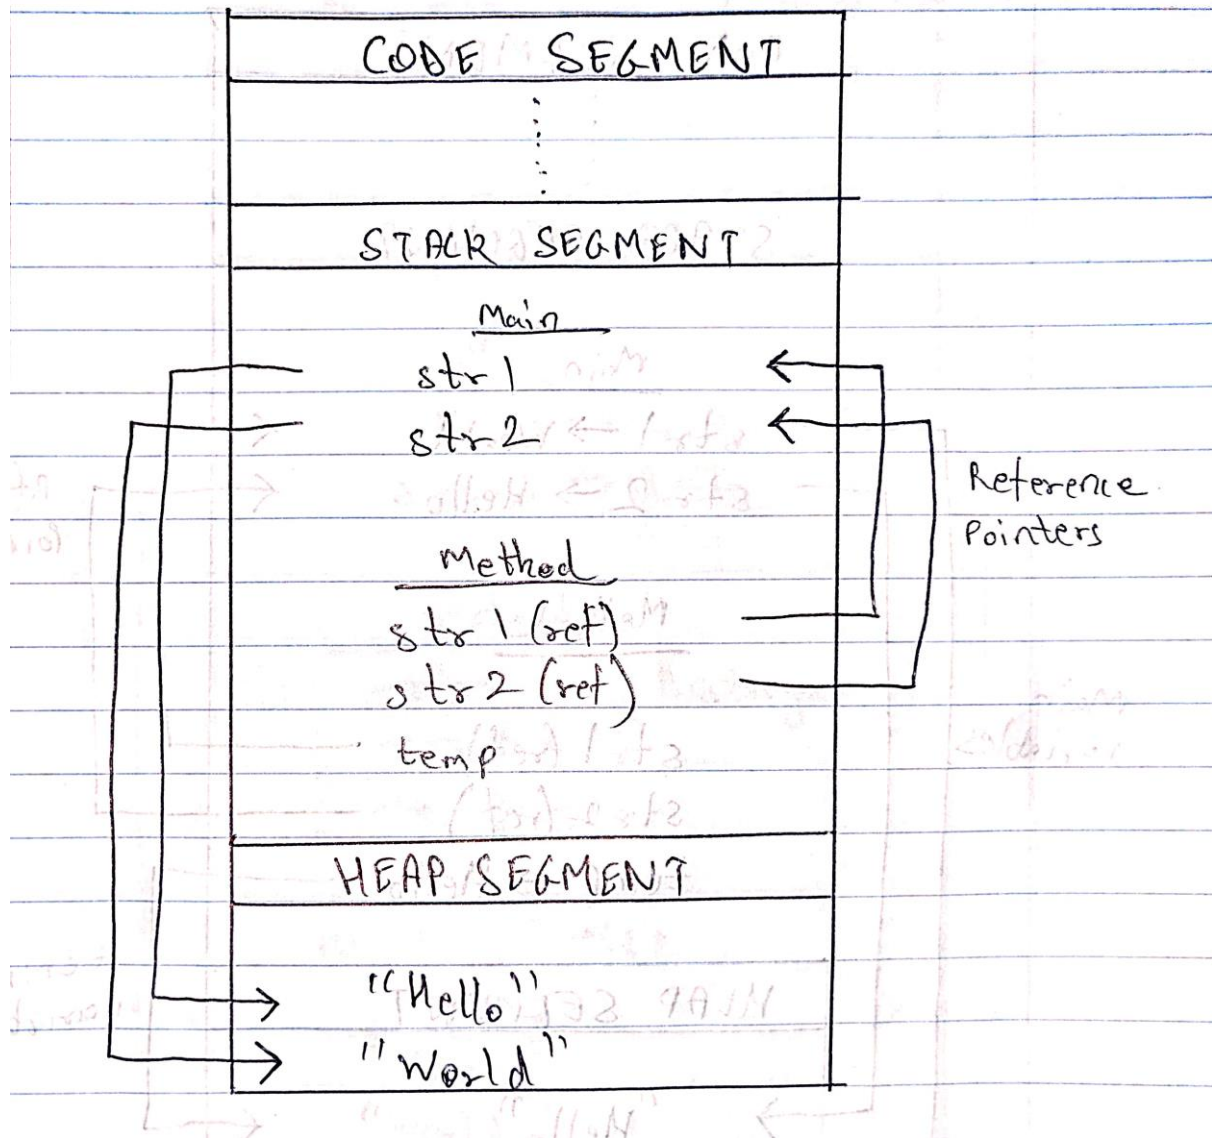 CODE SEGMENT
STACK SEGMENT
Main
str1
str2
Reference
Pointers
Method
str1 (ref)
str2 (ref)
temp
HEAP SEGMENT
"Hello"
"World"